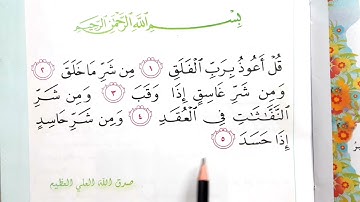 بِسْمِ اللَّهِ الرَّحْمَٰنِ الرَّحِيمِ
قُلْ أَعُوذُ بِرَبِّ الْفَلَقِ ١ مِن شَرِّ مَا خَلَقَ ٢
وَمِن شَرِّ غَاسِقٍ إِذَا وَقَبَ ٣ وَمِن شَرِّ
النَّفَّاثَاتِ فِي الْعُقَدِ ٤ وَمِن شَرِّ حَاسِدٍ
إِذَا حَسَدَ ٥
صدق الله العلي العظيم